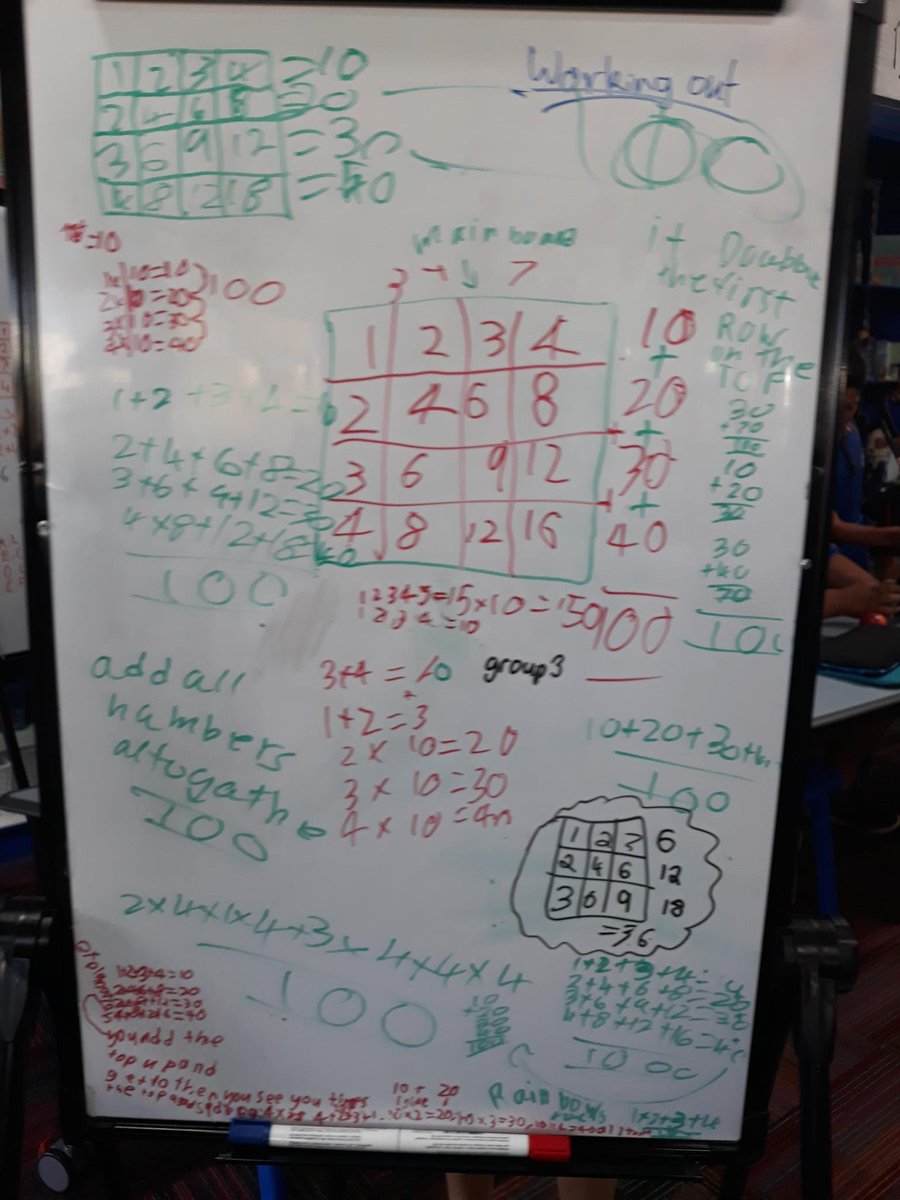 Working out
1 2 3 4 =10
2 4 6 8 =20
3 6 9 12 =30
4 8 12 18 =40
100
=10
1x10=10
2x10=20
3x10=30
4x10=40
100
main board
3 7
it Double
the first
Row
on the
TOP
1 2 3 4 10
+
2 4 6 8 20
+
3 6 9 12 30
+
4 8 12 16 40
100
1+2+3+4=
2+4+6+8=20
3+6+9+12=30
4+8+12+18=40
100
30
+70
100
10
+20
30
30
+40
70
100
1 2 3 4 5=15×10=150
1 2 3 4 =10
3+4=10 group 3
+
1+2=3
2 × 10=20
3 × 10=30
4 × 10=40
add all
numbers
altogath
100
10+20+30+
100
1 2 3 6
2 4 6 12
3 6 9 18
=36
2×4×1×4+3×4×4×4
100
10
+20
1+2+3+4=
2+4+6+8=20
3+6+9+12=
4+8+12+16=
100
=10
=20
=30
=40
you add the
top up and
get 10 then you see you
the top and
10 + 20
Rainbow
1+2+3+4